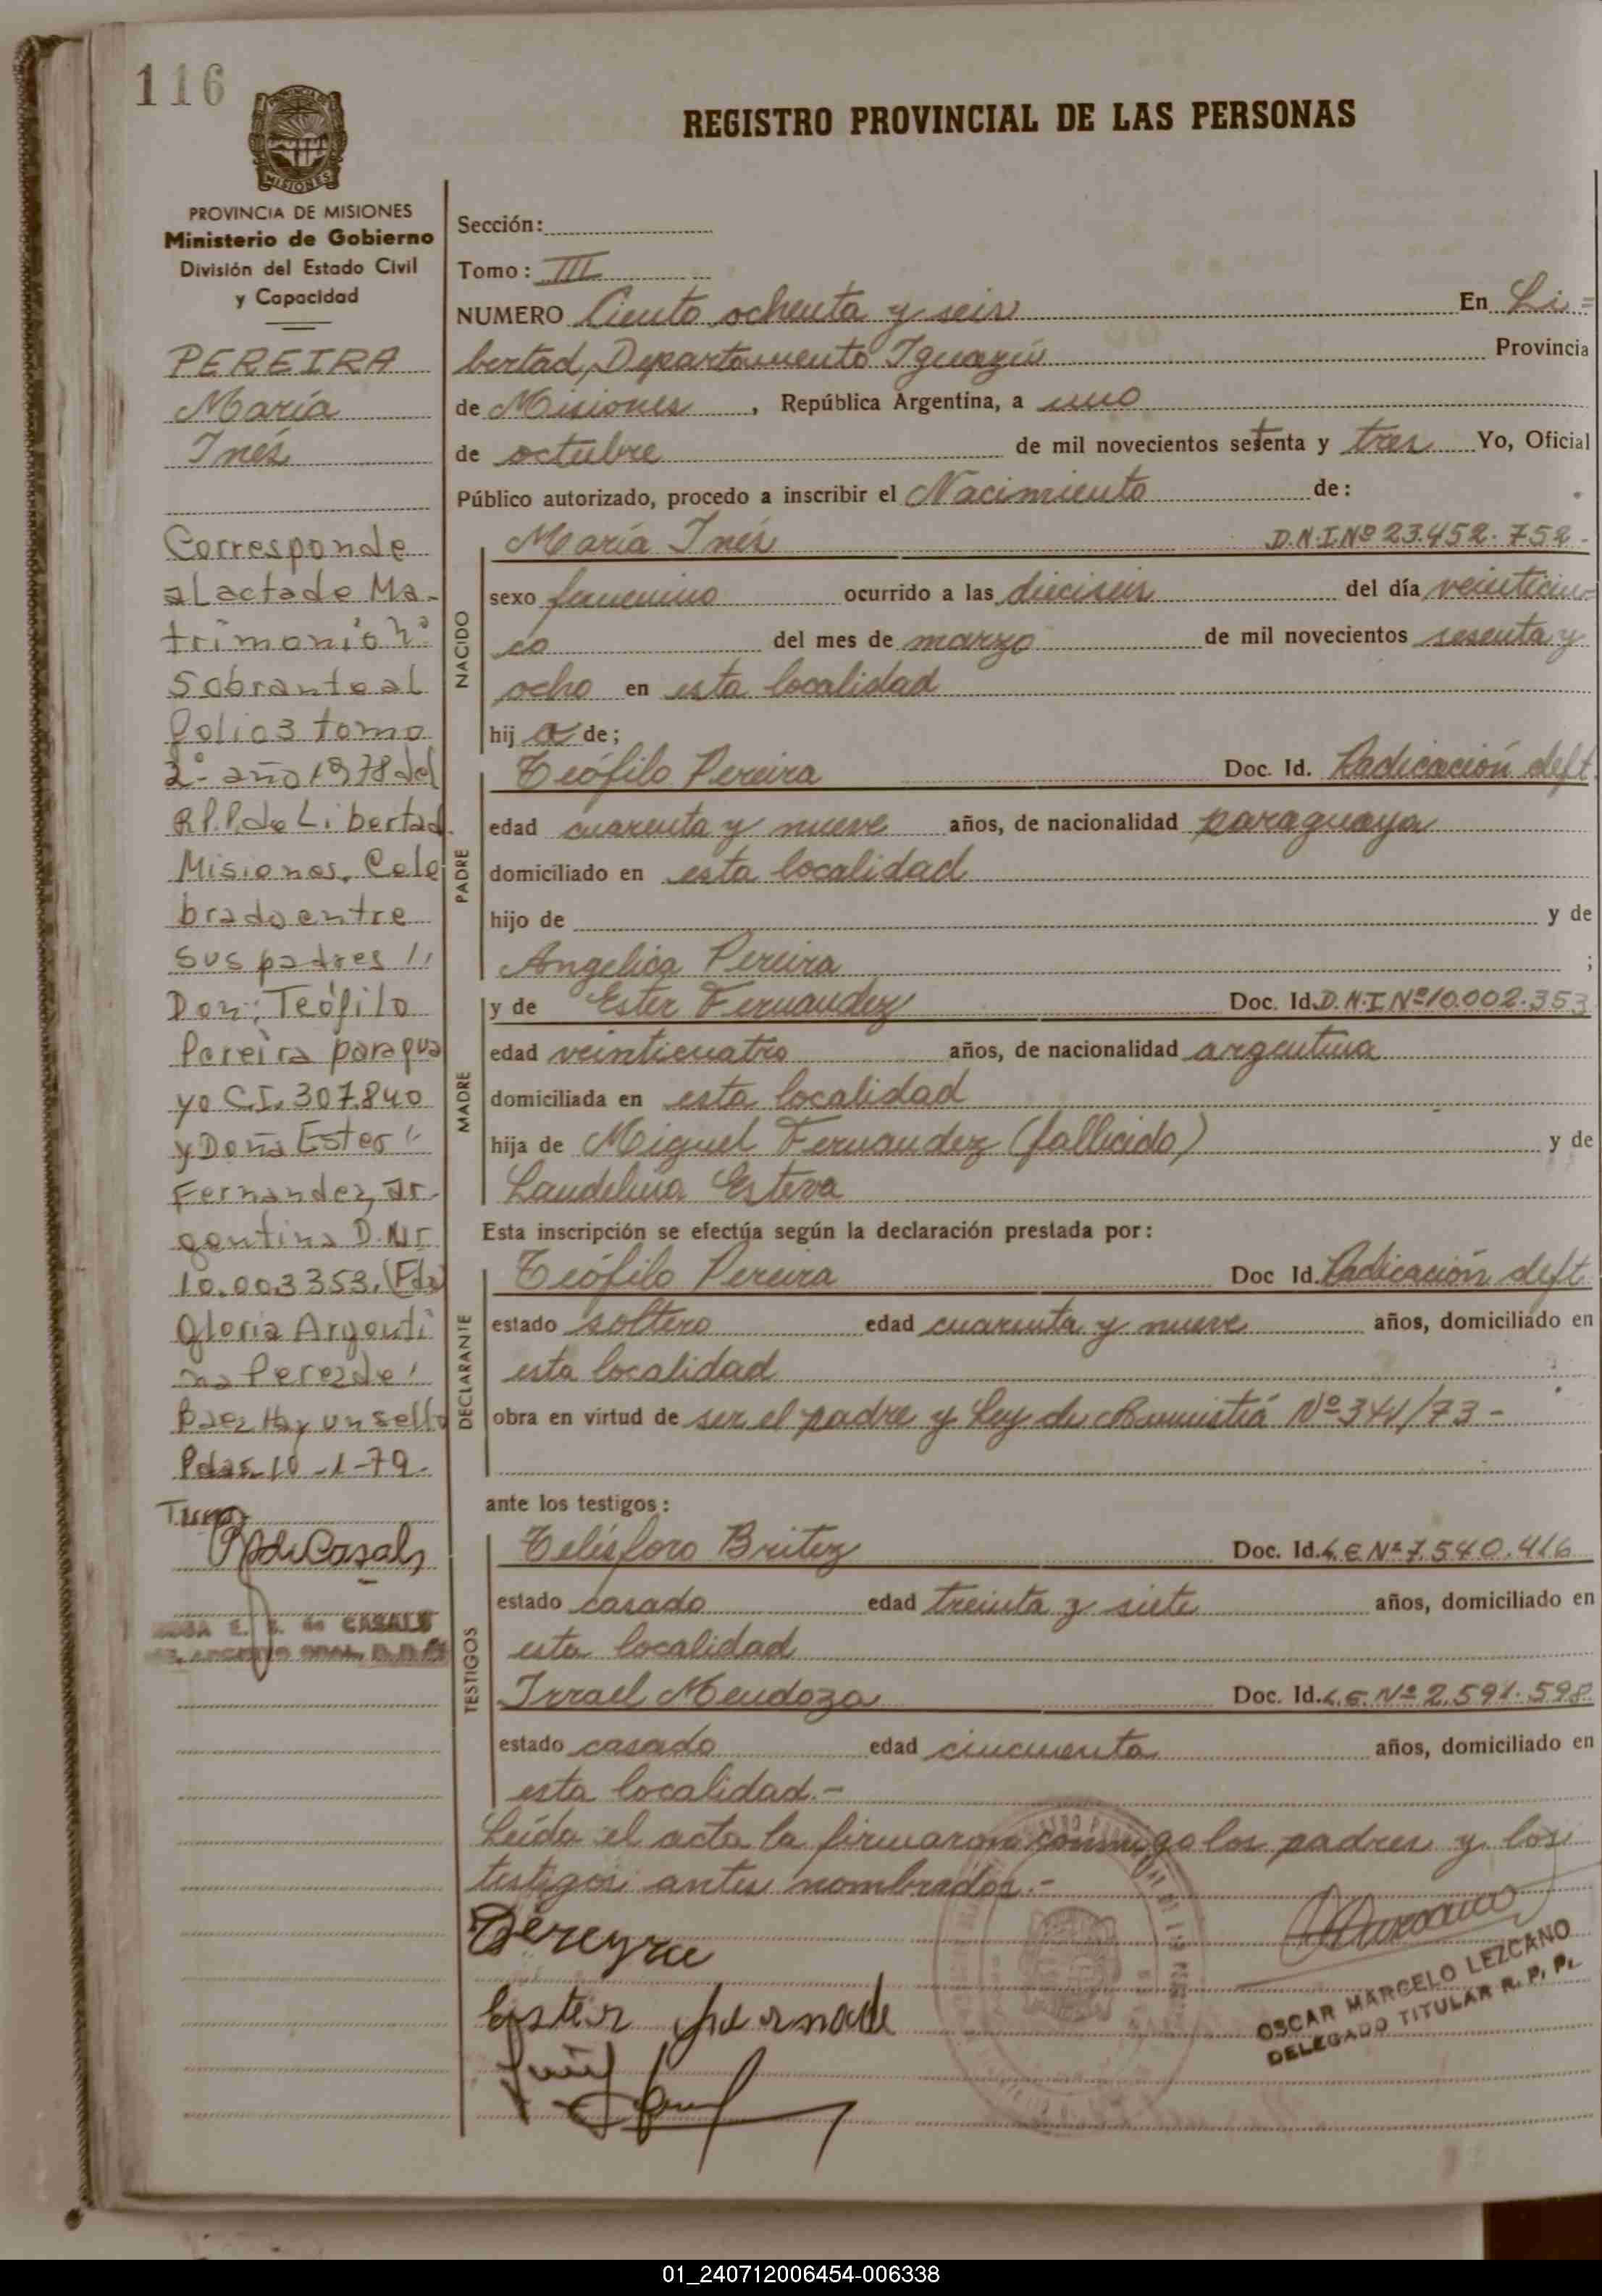 116
REGISTRO PROVINCIAL DE LAS PERSONAS
PROVINCIA DE MISIONES
Ministerio de Gobierno
División del Estado Civil
y Capacidad
PEREIRA
María
Inés
Corresponde
al acta de Ma-
trimonio nº
Sobrante al
folio 3 tomo
2º año 1978 del
R.P.P. de Libertad
Misiones. Cele
brado entre
sus padres //
Don: Teófilo
Pereira paragua
yo C.I. 307.840
y Doña Ester //
Fernandez, ar-
gentina D.N.I
10.003.353. (Fdo)
Gloria Argenti
na Perez de /
Baez. Hay un sello
Pdas. 10-1-79.
CASALS
Sección:
Tomo: III
NUMERO Ciento ochenta y seis En Li=
bertad, Departamento Iguazú Provincia
de Misiones, República Argentina, a uno
de octubre de mil novecientos setenta y tres Yo, Oficial
Público autorizado, procedo a inscribir el Nacimiento de:
NACIDO
María Inés D.N.I.Nº 23.452.752-
sexo femenino ocurrido a las dieciseis del día veinticin=
co del mes de marzo de mil novecientos sesenta y
ocho en esta localidad
hij a de;
PADRE
Teófilo Pereira Doc. Id. Radicación deft.
edad cuarenta y nueve años, de nacionalidad paraguaya
domiciliado en esta localidad
hijo de y de
Angelica Pereira ;
MADRE
y de Ester Fernandez Doc. Id. D.N.I Nº 10.002.353
edad veinticuatro años, de nacionalidad argentina
domiciliada en esta localidad
hija de Miguel Fernandez (fallicido) y de
Laudelina Esteva
Esta inscripción se efectúa según la declaración prestada por:
DECLARANTE
Teófilo Pereira Doc Id. Radicación deft.
estado soltero edad cuarenta y nueve años, domiciliado en
esta localidad
obra en virtud de ser el padre y Ley de Amnistiá Nº 341/73-
ante los testigos:
TESTIGOS
Telésforo Britez Doc. Id. L.E Nº 7.540.416
estado casado edad treinta y siete años, domiciliado en
esta localidad
Israel Mendoza Doc. Id. L.E. Nº 2.591.598
estado casado edad cincuenta años, domiciliado en
esta localidad.-
Leída el acta la firmaron conmigo los padres y los
testigos antes nombrados.-
Pereyra
Ester
OSCAR MARCELO LEZCANO
DELEGADO TITULAR R. P. P.
01_240712006454-006338